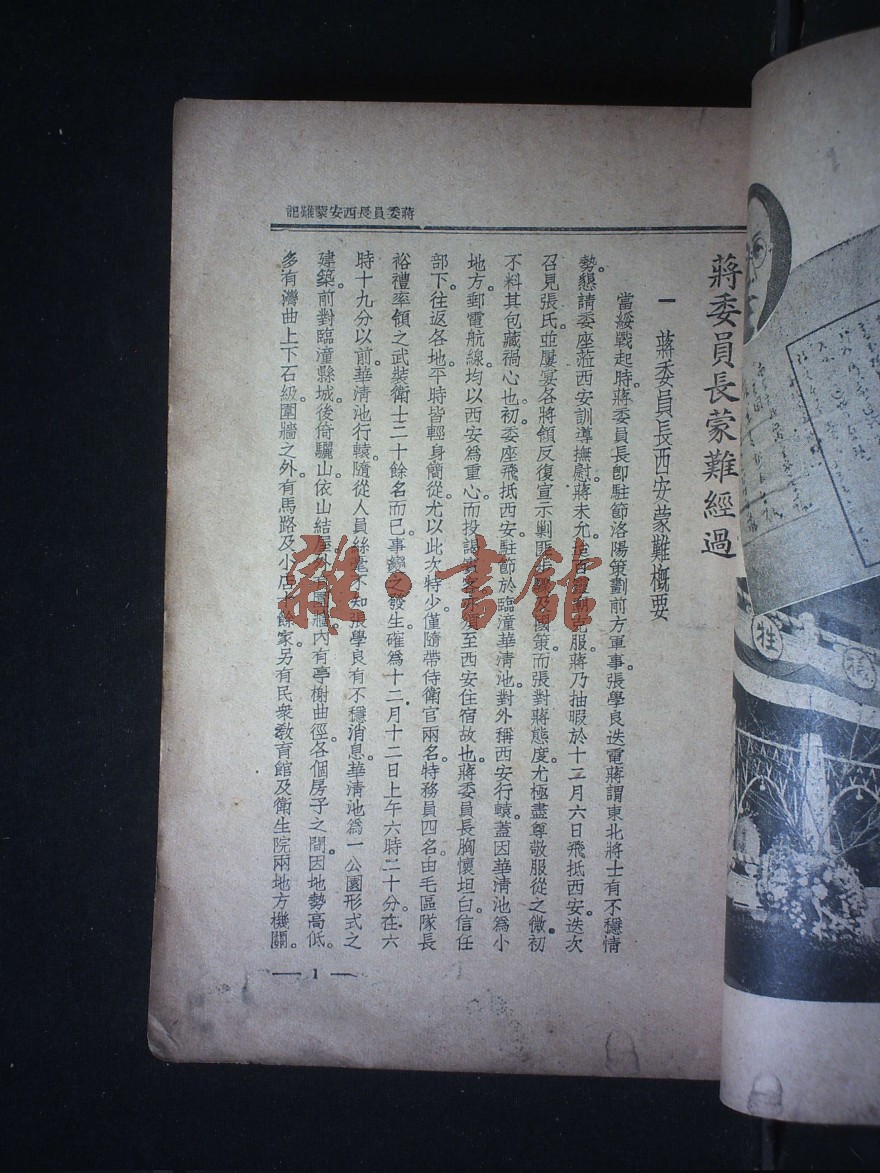 蔣委員長西安蒙難記
蔣委員長蒙難經過
一 蔣委員長西安蒙難概要
當綏戰起時。蔣委員長卽駐節洛陽策劃前方軍事。張學良迭電蔣謂東北將士有不穩情
勢。懇請委座蒞西安訓導撫慰。蔣未允。迨百靈廟克服。蔣乃抽暇於十二月六日飛抵西安。迭次
召見張氏。並屢宴各將領。反復宣示剿匪步驟及國策。而張對蔣態度。尤極盡尊敬服從之微。初
不料其包藏禍心也。初委座飛抵西安。駐節於臨潼華清池。對外稱西安行轅。蓋因華清池爲小
地方。郵電航線。均以西安爲重心。而投謁賓客。亦須至西安住宿故也。蔣委員長胸懷坦白。信任
部下。往返各地。平時皆輕身簡從。尤以此次特少。僅隨帶侍衛官兩名。特務員四名。由毛區隊長
裕禮率領之武裝衛士二十餘名而已。事變之發生。確爲十二月十二日上午六時二十分。在六
時十九分以前。華清池行轅隨從人員。絲毫不知張學良有不穩消息。華清池爲一公園形式之
建築。前對臨潼縣城。後倚驪山。依山結屋。外有圍牆。內有亭榭曲徑。各個房子之間。因地勢高低。
多有灣曲上下石級。圍牆之外。有馬路及小店十餘家。另有民衆敎育館及衛生院兩地方機關。
— 1 —
雜·書館